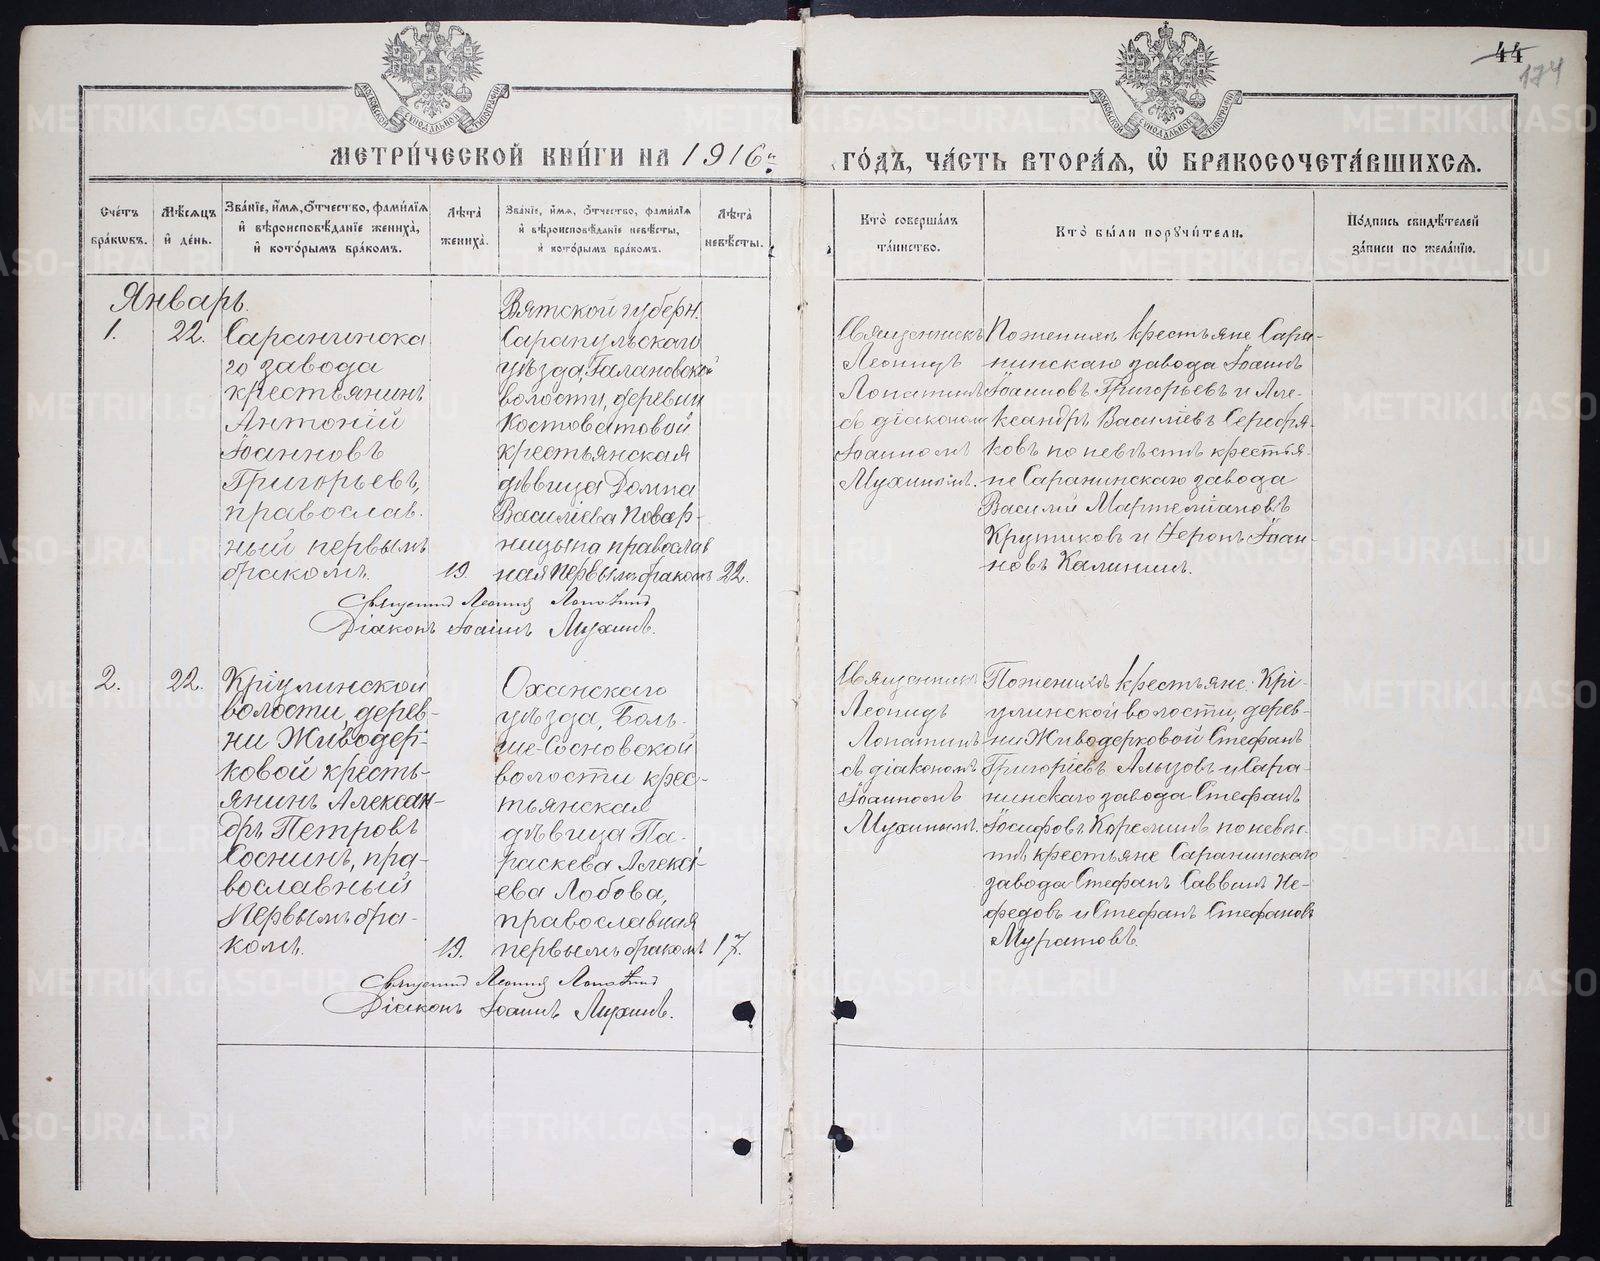 44
174
МЕТРИ́ЧЕСКОЙ КНИ́ГИ НА 1916 й
ГО́ДЪ, ЧА́СТЬ ВТОРА́Я, Ѡ҆ БРАКОСОЧЕТА́ВШИХСЯ.
Сче́тъ
бра́кѡвъ.
Мѣ́сяцъ
и҆ де́нь.
Зва́нїе, и҆́мя, ѻ҆́тчество, фами́лїя
и҆ вѣроисповѣ́данїе жениха̀,
и҆ кото́рымъ бра́комъ.
Лѣ́та̀
жениха̀.
Зва́нїе, и҆́мя, ѻ҆́тчество, фами́лїя
и҆ вѣроисповѣ́данїе невѣ́сты,
и҆ кото́рымъ бра́комъ.
Лѣ́та̀
невѣ́сты.
Кто̀ соверша́лъ
та́инство.
Кто̀ бы́ли порꙋчи́тели.
По́дпись свидѣ́телей
за́писи по жела́нїю.
Январь.
1.
22.
Саранинска
го завода
крестьянинъ
Антоній
Іоанновъ
Григорьевъ,
православ.
ный первымъ
бракомъ.
19.
Вятской губерн.
Сарапульскаго
уѣзда, Галановской
волости, деревни
Костоватовой
крестьянская
дѣвица Домна
Василіева Повар-
ницына православ
ная первымъ бракомъ
22.
Священникъ
Леонидъ
Лопатинъ
съ діакономъ
Іоанномъ
Мухинымъ.
По женихѣ крестьяне Сара-
нинскаго завода Іоаннъ
Іоанновъ Григорьевъ и Але-
ксандръ Василіевъ Серебря-
ковъ по невѣстѣ крестья-
не Саранинскаго завода
Василій Мартеміановъ
Крутиковъ и Іеронъ Іоан-
новъ Калининъ.
Священникъ Леонидъ Лопатинъ
Діаконъ Іоаннъ Мухинъ.
2.
22.
Кріулинской
волости, дерев-
ни Живодер-
ковой кресть-
янинъ Алексан-
дръ Петровъ
Соснинъ, пра-
вославный
первымъ бра-
комъ.
19.
Оханскаго
уѣзда, Боль-
ше-Сосновской
волости крес-
тьянская
дѣвица Па-
раскева Алексі-
ева Лобова,
православная
первымъ бракомъ
17.
Священникъ
Леонидъ
Лопатинъ
съ діакономъ
Іоанномъ
Мухинымъ.
По женихѣ крестьяне: Крі-
улинской волости, дерев-
ни Живодерковой Стефанъ
Григоріевъ Алызовъ и Сара-
нинскаго завода Стефанъ
Іосифовъ Корелинъ по невѣс-
тѣ крестьяне Саранинскаго
завода Стефанъ Саввинъ Не-
федовъ и Стефанъ Стефановъ
Муратовъ.
Священникъ Леонидъ Лопатинъ
Діаконъ Іоаннъ Мухинъ.